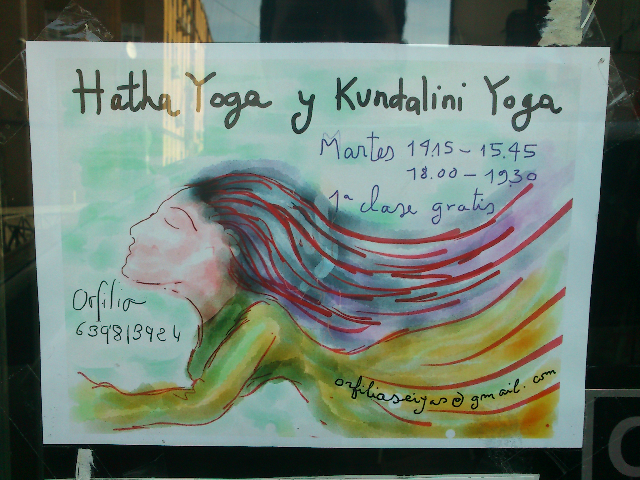 Hatha Yoga y Kundalini Yoga
Martes 14.15 - 15.45
18.00 - 19.30
1ª clase gratis
Orfilia
639813924
orfiliaseijas@gmail.com